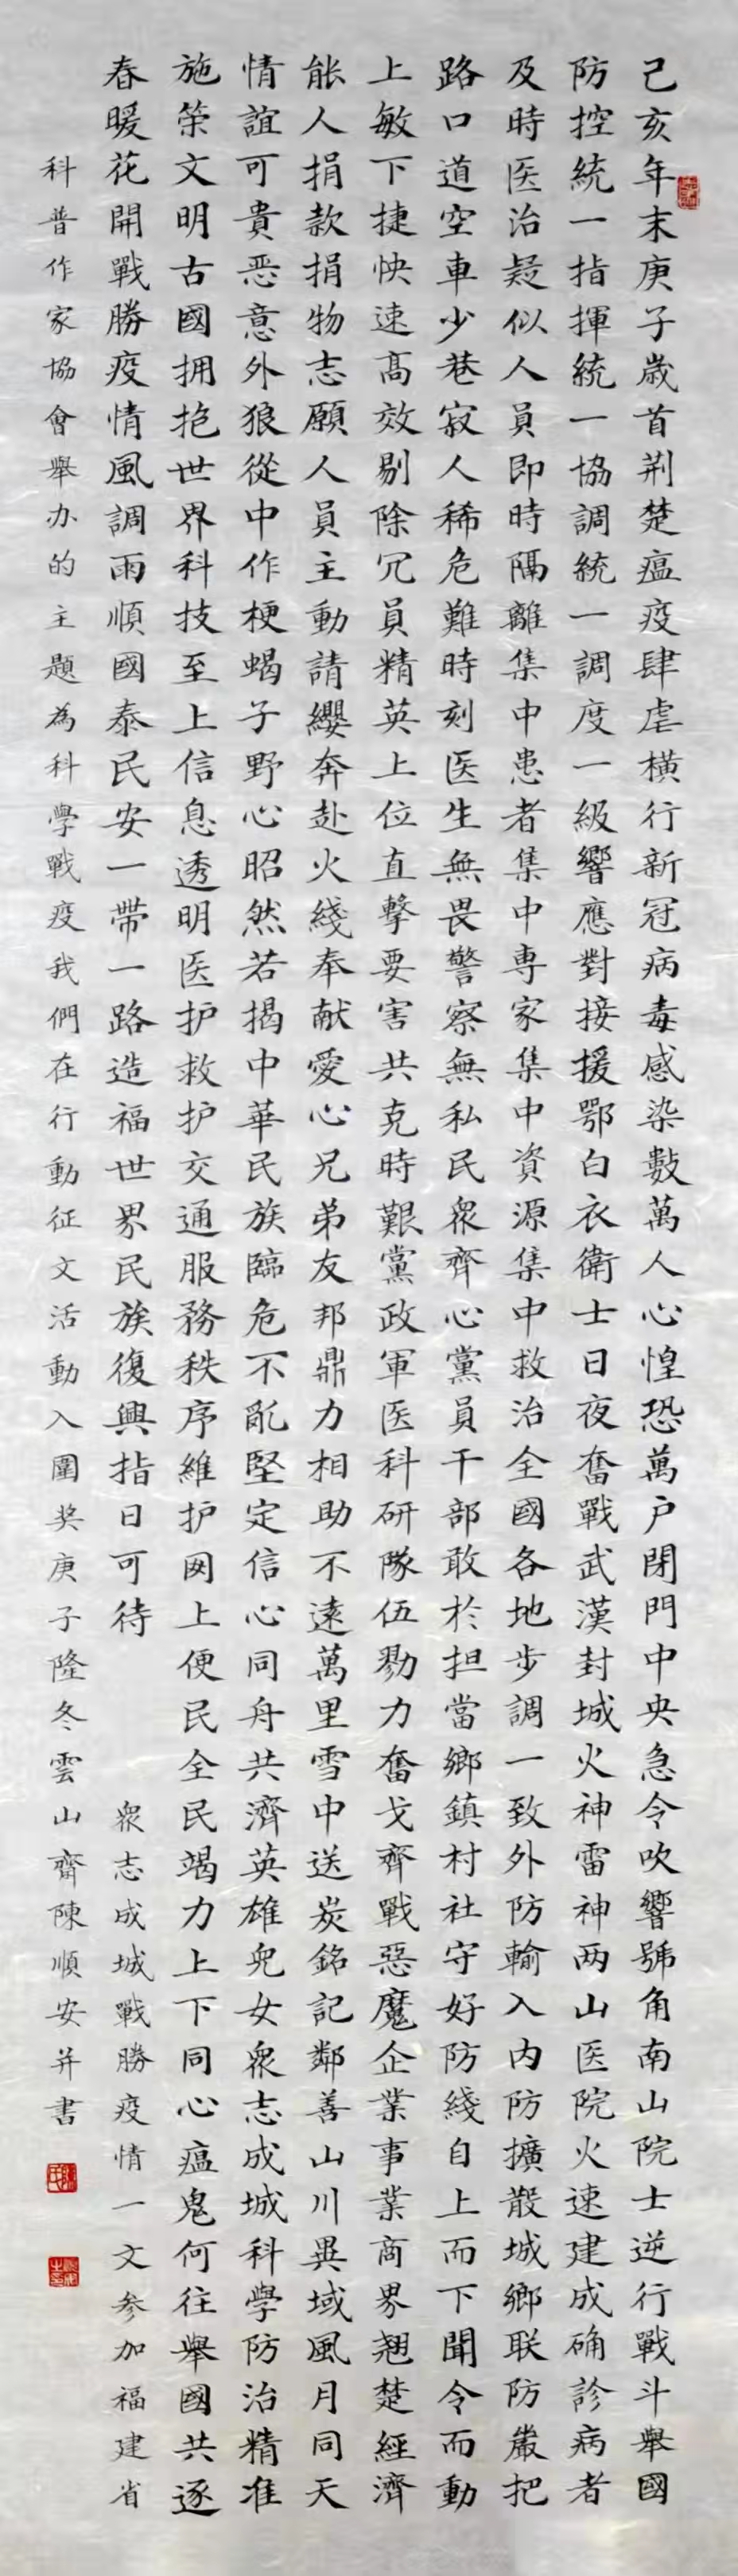 己亥年末庚子歲首荆楚瘟疫肆虐横行新冠病毒感染數萬人心惶恐萬户閉門中央急令吹響號角南山院士逆行戰斗舉國
防控統一指揮統一協調統一調度一級響應對接援鄂白衣衛士日夜奮戰武漢封城火神雷神两山医院火速建成确診病者
及時医治疑似人員即時隔離集中患者集中專家集中資源集中救治全國各地步調一致外防輸入内防擴散城鄉联防嚴把
路口道空車少巷寂人稀危難時刻医生無畏警察無私民衆齊心黨員干部敢於担當鄉鎮村社守好防綫自上而下聞令而動
上敏下捷快速高效剔除冗員精英上位直擊要害共克時艱黨政軍医科研隊伍勠力奮戈齊戰惡魔企業事業商界翘楚經濟
能人捐款捐物志願人員主動請纓奔赴火綫奉献愛心兄弟友邦鼎力相助不遠萬里雪中送炭銘記鄰善山川異域風月同天
情誼可貴恶意外狼從中作梗蝎子野心昭然若揭中華民族臨危不亂堅定信心同舟共濟英雄兒女衆志成城科學防治精准
施策文明古國拥抱世界科技至上信息透明医护救护交通服務秩序維护网上便民全民竭力上下同心瘟鬼何往舉國共逐
春暖花開戰勝疫情風調雨順國泰民安一帶一路造福世界民族復興指日可待 衆志成城戰勝疫情一文參加福建省
科普作家協會舉办的主題為科學戰疫我們在行動征文活動入圍奖庚子隆冬雲山齋陳順安并書